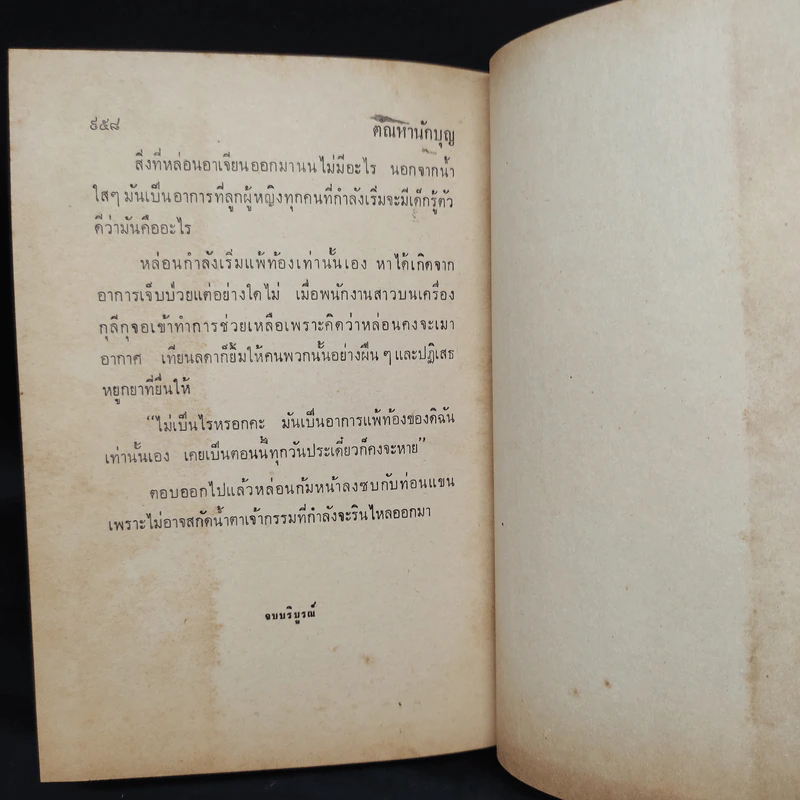 ๙๕๘
ตัณหานักบุญ
สิ่งที่หล่อนอาเจียนออกมานนไม่มีอะไร นอกจากน้ำ
ใสๆ มันเป็นอาการที่ลูกผู้หญิงทุกคนที่กำลังเริ่มจะมีเด็กรู้ตัว
ดีว่ามันคืออะไร
หล่อนกำลังเริ่มแพ้ท้องเท่านั้นเอง หาได้เกิดจาก
อาการเจ็บป่วยแต่อย่างใดไม่ เมื่อพนักงานสาวบนเครื่อง
กุลีกุจอเข้าทำการช่วยเหลือเพราะคิดว่าหล่อนคงจะเมา
อากาศ เทียนลดาก็ยิ้มให้คนพวกนั้นอย่างฝืนๆ และปฏิเสธ
หยูกยาที่ยื่นให้
“ไม่เป็นไรหรอกคะ มันเป็นอาการแพ้ท้องของดิฉัน
เท่านั้นเอง เคยเป็นตอนนี้ทุกวันประเดี๋ยวก็คงจะหาย”
ตอบออกไปแล้วหล่อนก้มหน้าลงซบกับท่อนแขน
เพราะไม่อาจสกัดน้ำตาเจ้ากรรมที่กำลังจะรินไหลออกมา
จบบริบูรณ์